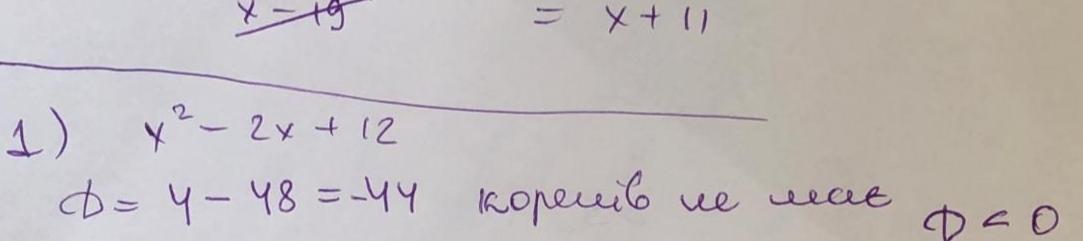 x - 19 = x + 11
1) x² - 2x + 12
D = 4 - 48 = -44 коренів не має D < 0